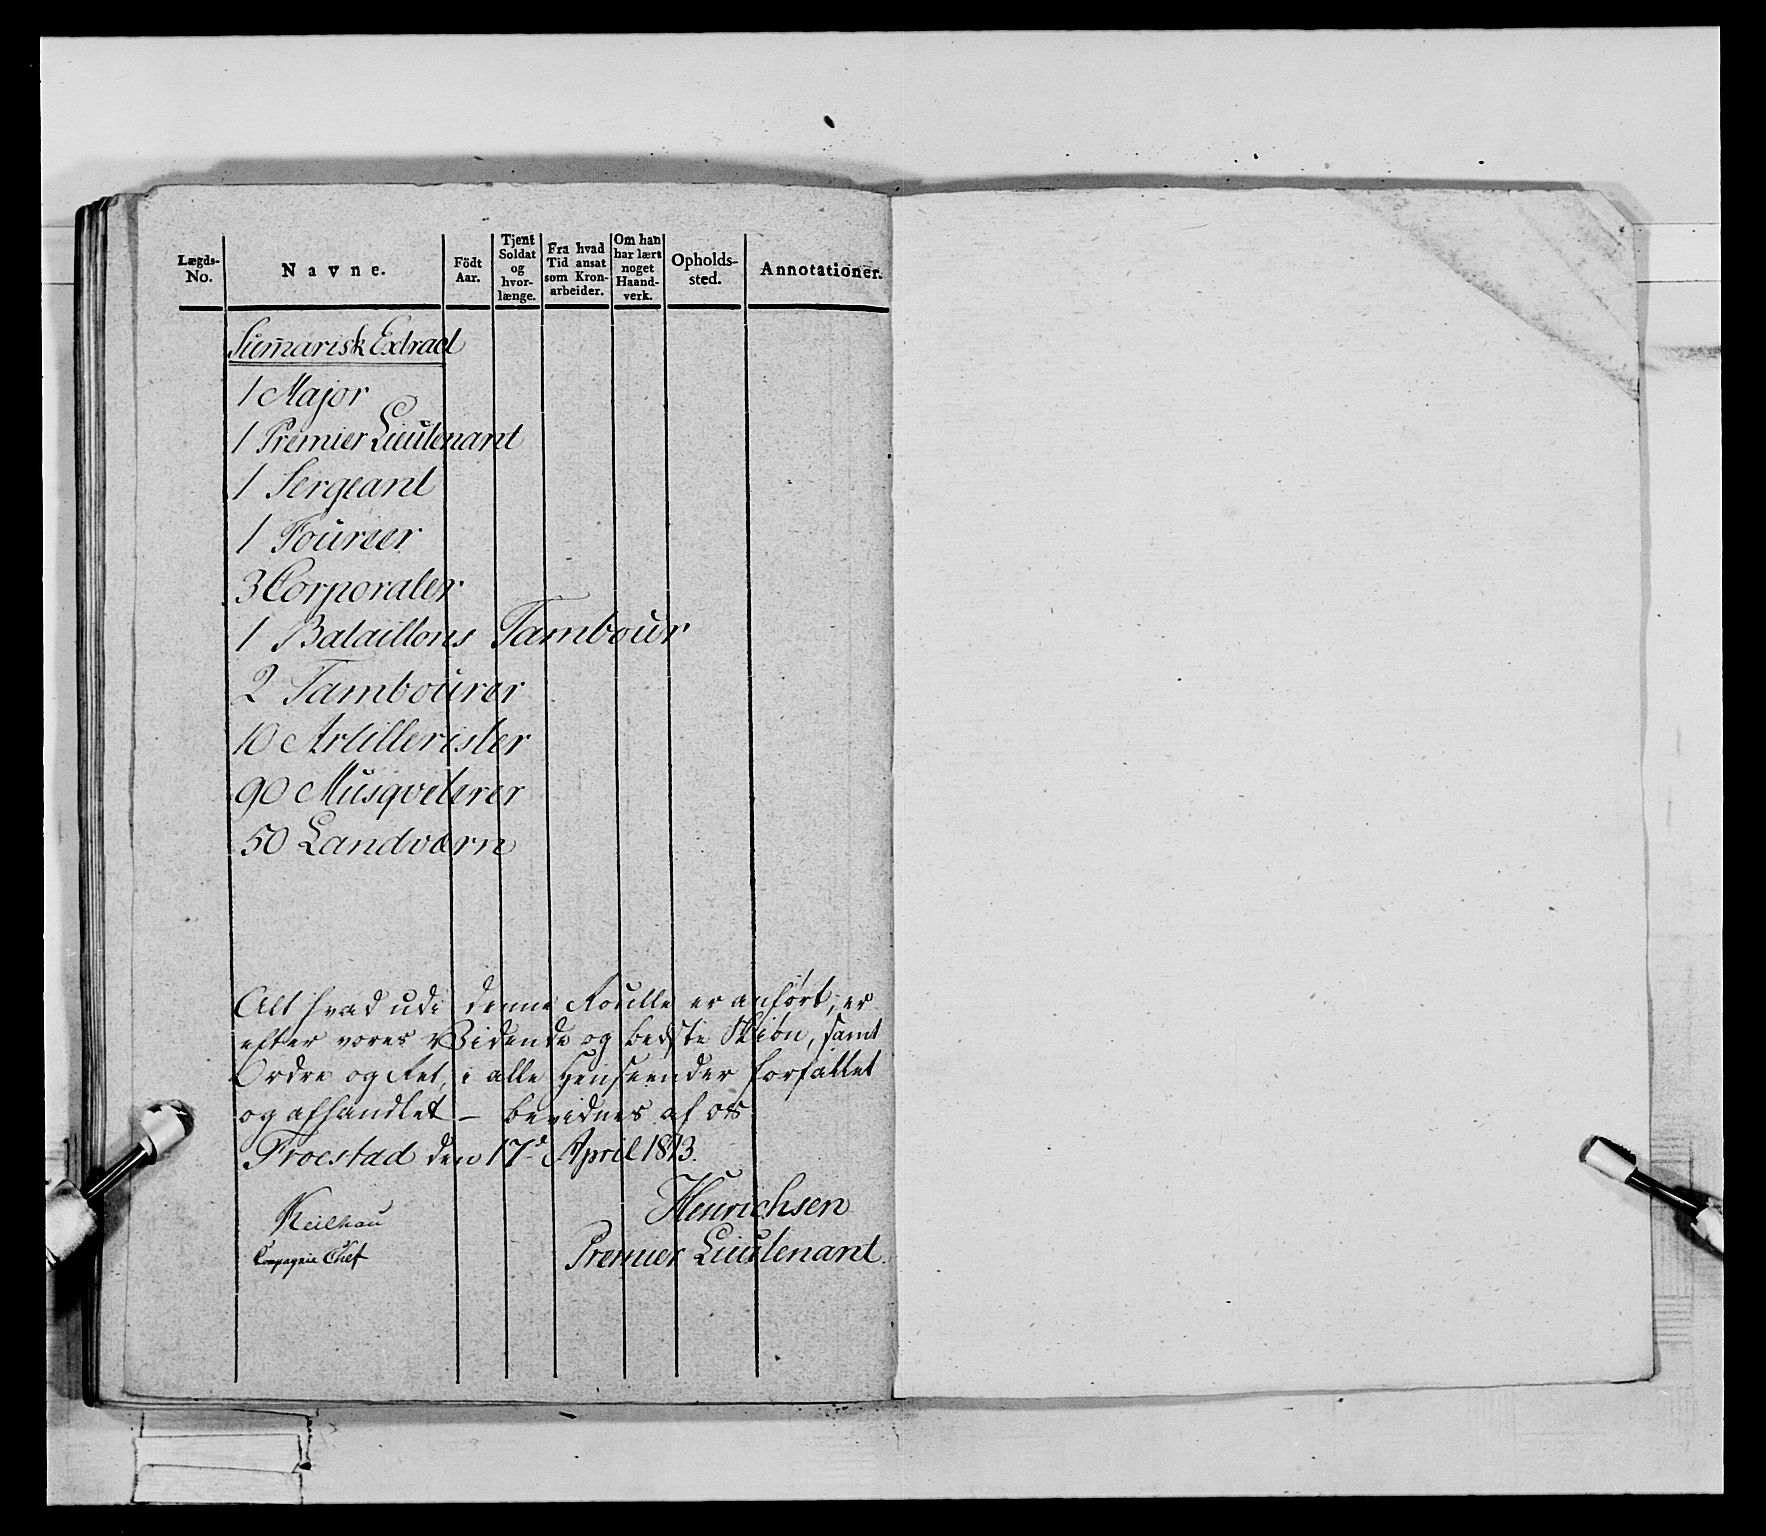 Lægds-No. Navne. Födt Aar. Tjent Soldat og hvor-længe. Fra hvad Tid ansat som Kron-arbeider. Om han har lært noget Haand-verk. Opholds-sted. Annotationer.
Sum̄arisk Extract
1 Major
1 Premier Lieutenant
1 Sergeant
1 Fourier
3 Corporaler
1 Bataillons Tambour
2 Tambourer
10 Artillerister
90 Musqveterer
50 Landværn
Alt hvad udi denne Roulle er anført, er
efter vores Vidende og bedste Skiøn, samt
Ordre og Ret, i alle Henseender forfattet
og afhandlet – bevidnes af os
Froestad den 17d April 1813.
Keilhau
Compagnie Chef
Henrichsen
Premier Lieutenant.